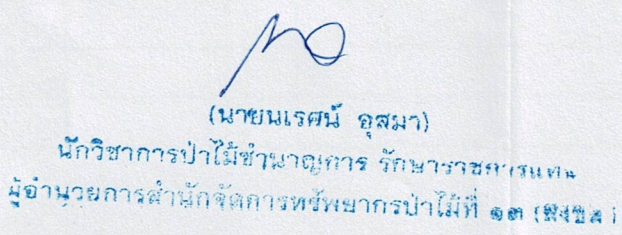 (นายนเรศน์ อุสมา)
นักวิชาการป่าไม้ชำนาญการ รักษาราชการแทน
ผู้อำนวยการสำนักจัดการทรัพยากรป่าไม้ที่ ๑๓ (สงขลา